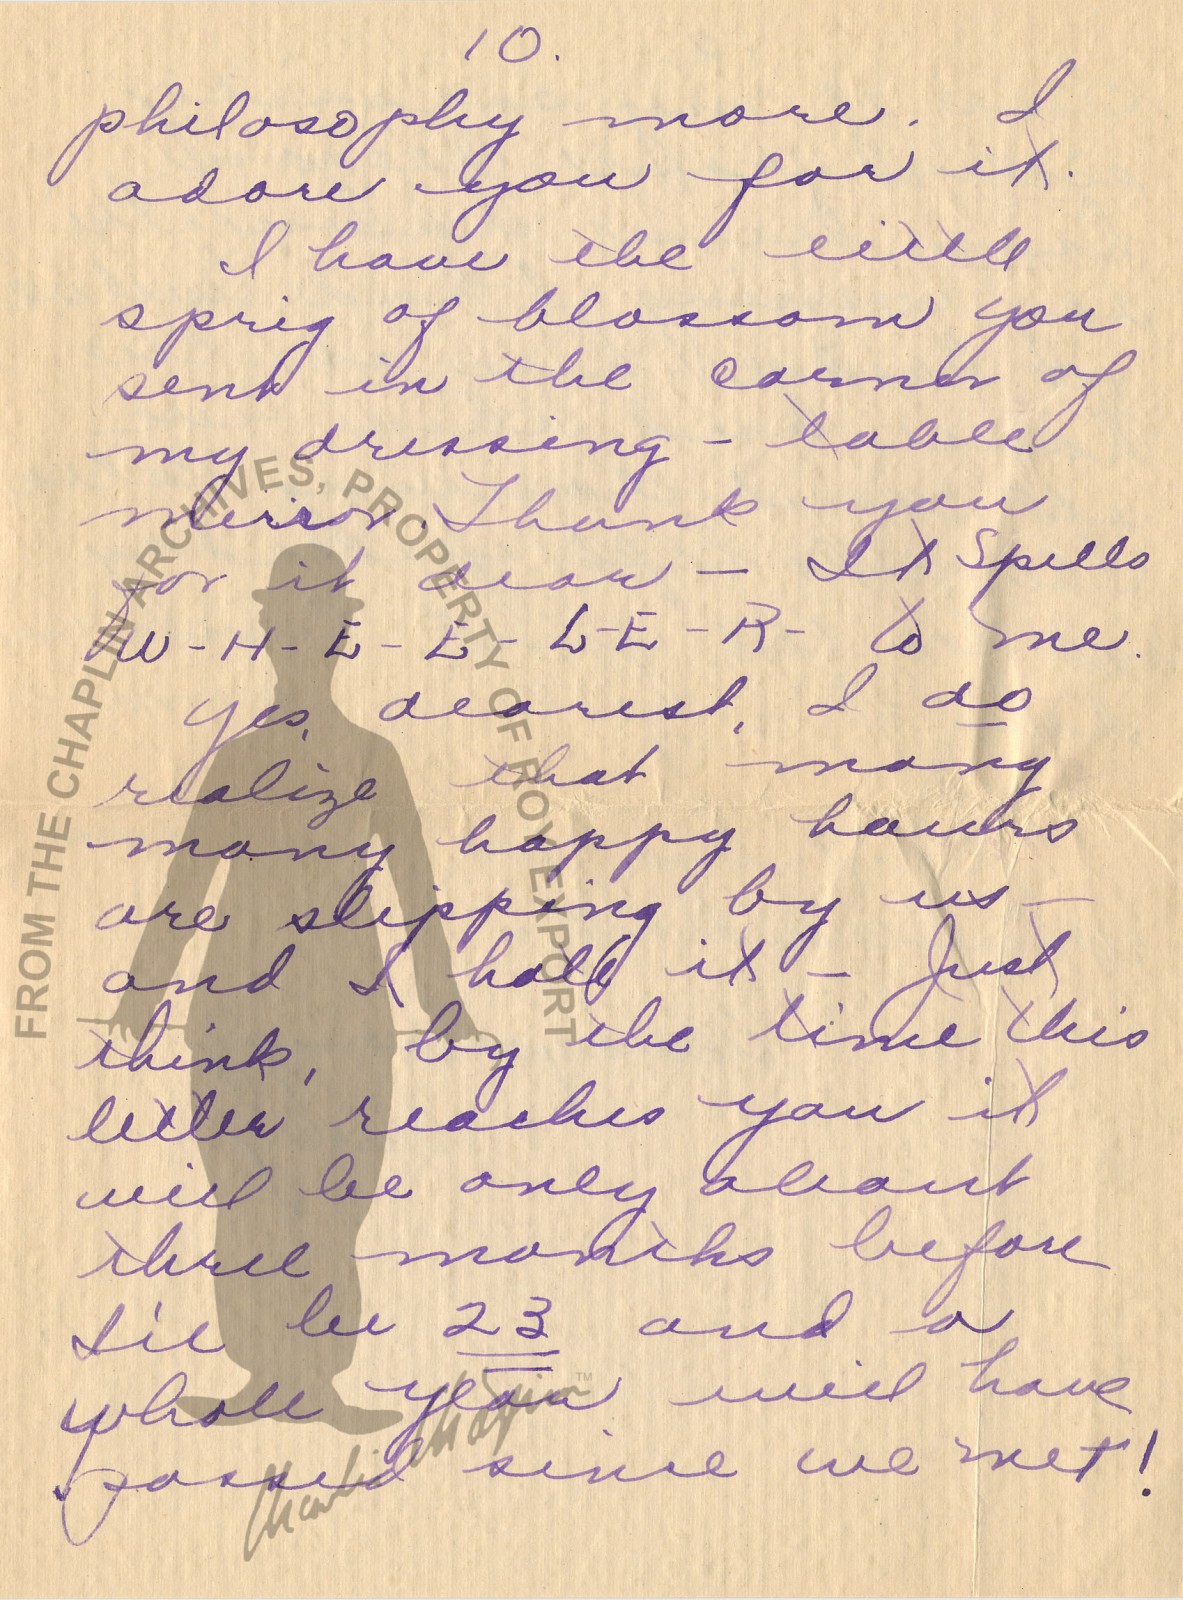 10.
philosophy more. I
adore you for it.
I have the little
sprig of blossom you
sent in the corner of
my dressing - table
mirror. Thank you
for it dear - It Spells
W-H-E-E-L-E-R- to me.
Yes, dearest, I do
realize that many
many happy hours
are slipping by us -
and I hate it - Just
think, by the time this
letter reaches you it
will be only about
three months before
I'll be 23 and a
whole year will have
passed since we met!
FROM THE CHAPLIN ARCHIVES, PROPERTY OF ROY EXPORT
Charlie Chaplin TM